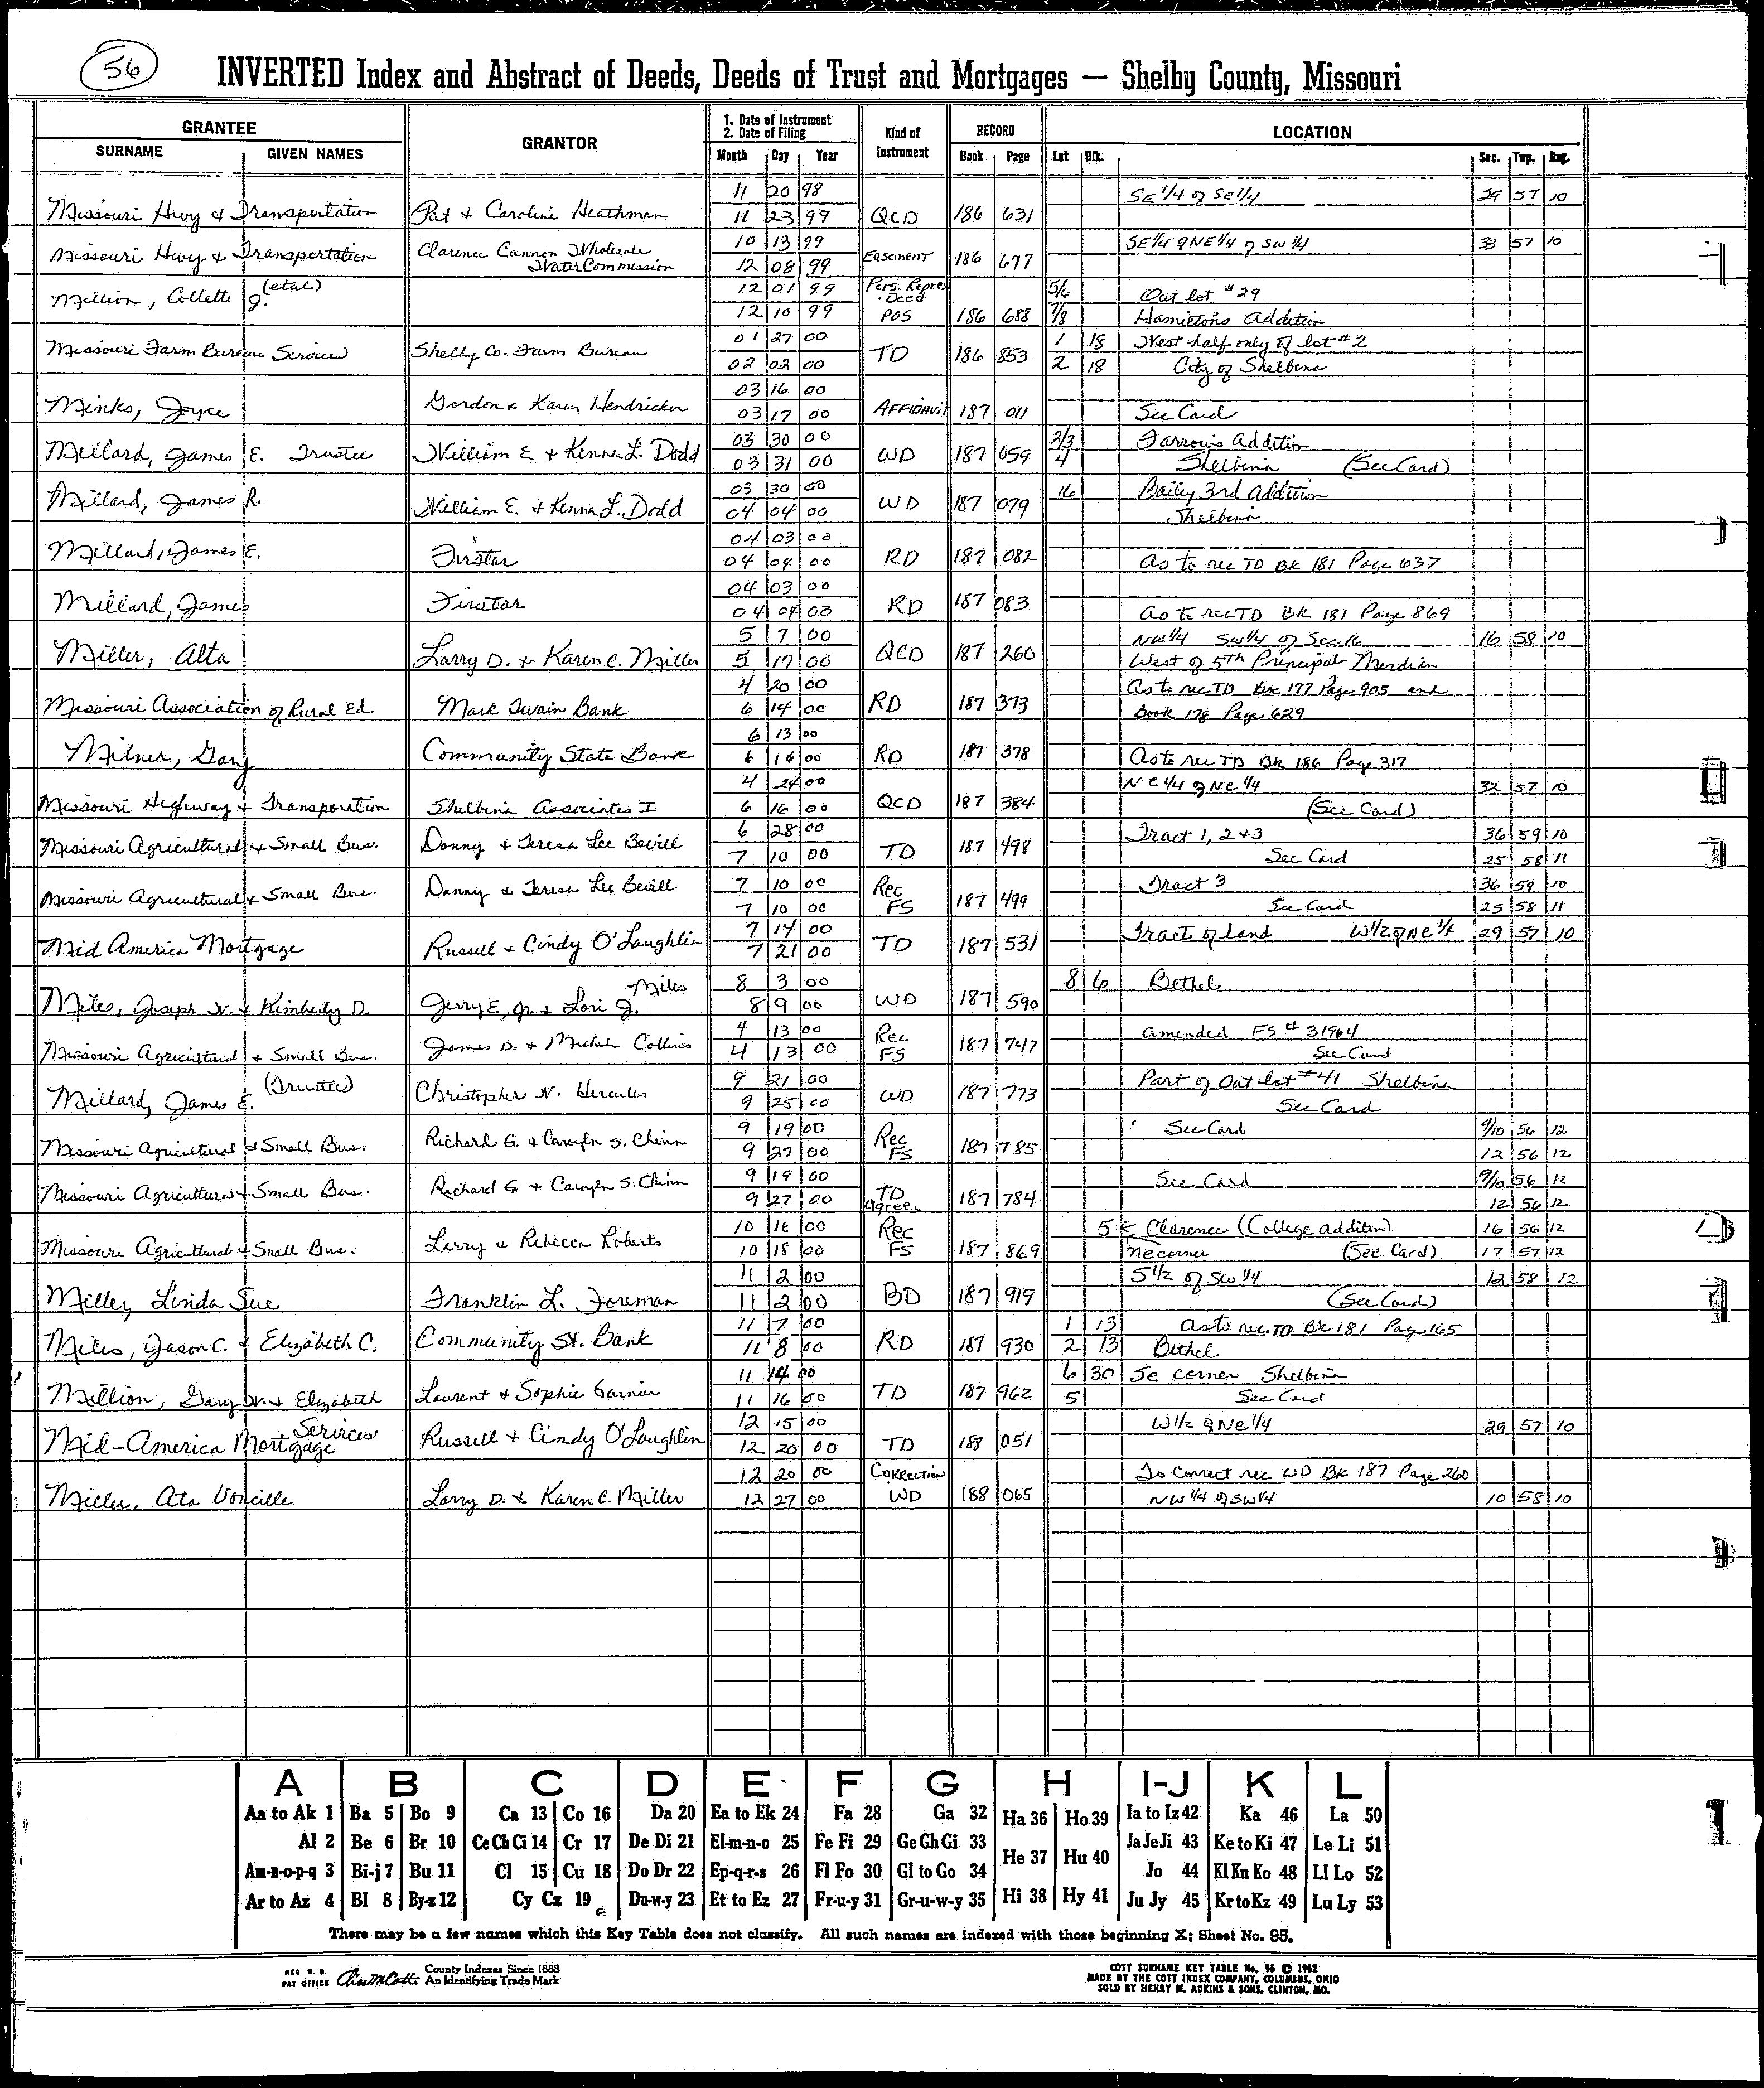 56
INVERTED Index and Abstract of Deeds, Deeds of Trust and Mortgages — Shelby County, Missouri
GRANTEE GRANTOR 1. Date of Instrument 2. Date of Filing Kind of Instrument RECORD LOCATION
SURNAME GIVEN NAMES Month Day Year Book Page Lot Blk. Sec. Twp. Rng.
11 20 98 SE 1/4 of SE 1/4 29 57 10
Missouri Hwy & Transportation Pat & Caroline Heathman 11 23 99 QCD 186 631
10 13 99 SE 1/4 & NE 1/4 of SW 1/4 33 57 10
Missouri Hwy & Transportation Clarence Cannon Wholesale Water Commission 12 08 99 Easement 186 677
(etal) 12 01 99 Pers. Repres. Deed 5/6 Out lot #29
Million, Collette J. 12 10 99 POS 186 688 7/8 Hamilton's Addition
01 27 00 1 18 West half only of lot #2
Missouri Farm Bureau Services Shelby Co. Farm Bureau 02 02 00 TD 186 853 2 18 City of Shelbina
03 16 00
Minks, Joyce Gordon & Karen Hendricker 03 17 00 AFFIDAVIT 187 011 See Card
03 30 00 2/3 Farrow's Addition
Millard, James E. Trustee William E & Kenna L. Dodd 03 31 00 WD 187 059 4 Shelbina (See Card)
03 30 00 16 Baily 3rd Addition
Millard, James R. William E. & Kenna L. Dodd 04 04 00 WD 187 079 Shelbina
04 03 00
Millard, James E. Firstar 04 04 00 RD 187 082 As to rec TD BK 181 Page 637
04 03 00
Millard, James Firstar 04 04 00 RD 187 083 As to rec TD BK 181 Page 869
5 7 00 NW 1/4 SW 1/4 of Sec. 16 16 58 10
Miller, Alta Larry D. & Karen C. Miller 5 17 00 QCD 187 260 West of 5th Principal Meridian
4 20 00 As to rec TD BK 177 Page 905 and
Missouri Association of Rural Ed. Mark Twain Bank 6 14 00 RD 187 373 Book 178 Page 629
6 13 00
Milner, Gary Community State Bank 6 16 00 RD 187 378 As to rec TD BK 186 Page 317
4 24 00 NE 1/4 of NE 1/4 32 57 10
Missouri Highway & Transporation Shelbina Associates I 6 16 00 QCD 187 384 (See Card)
6 28 00 Tract 1, 2 + 3 36 59 10
Missouri Agricultural & Small Bus. Danny & Teresa Lee Bevill 7 10 00 TD 187 498 See Card 25 58 11
7 10 00 Rec Tract 3 36 59 10
Missouri Agricultural & Small Bus. Danny & Teresa Lee Bevill 7 10 00 FS 187 499 See Card 25 58 11
7 14 00 Tract of land W 1/2 of NE 1/4 29 57 10
Mid America Mortgage Russell & Cindy O'Laughlin 7 21 00 TD 187 531
Miles 8 3 00 8 6 Bethel
Miles, Joseph W. & Kimberly D. Jerry E., Jr. & Lori J. 8 9 00 WD 187 590
4 13 00 Rec Amended FS # 31964
Missouri Agricultural & Small Bus. James D. & Michele Collins 4 13 00 FS 187 747 See Card
(Trustee) 9 21 00 Part of Out lot #41 Shelbina
Millard, James E. Christopher W. Hercules 9 25 00 WD 187 773 See Card
9 19 00 Rec See Card 9/10 56 12
Missouri Agricultural & Small Bus. Richard G. & Carolyn S. Chinn 9 27 00 FS 187 785 12 56 12
9 19 00 TD See Card 9/10 56 12
Missouri Agricultural & Small Bus. Richard G & Carolyn S. Chinn 9 27 00 Agree. 187 784 12 56 12
10 16 00 Rec 5 Clarence (College Addition) 16 56 12
Missouri Agricultural & Small Bus. Larry & Rebecca Roberts 10 18 00 FS 187 869 NE corner (See Card) 17 57 12
11 2 00 S 1/2 of SW 1/4 12 58 12
Miller, Linda Sue Franklin L. Foreman 11 2 00 BD 187 919 (See Card)
11 7 00 1 13 As to rec. TD BK 181 Page 165
Miles, Jason C. & Elizabeth C. Community St. Bank 11 8 00 RD 187 930 2 13 Bethel
11 14 00 6 30 Se corner Shelbina
Million, Gary W. & Elizabeth Laurent & Sophie Garnier 11 16 00 TD 187 962 5 See Card
Services 12 15 00 W 1/2 of NE 1/4 29 57 10
Mid-America Mortgage Russell & Cindy O'Laughlin 12 20 00 TD 188 051
12 20 00 Correction To correct rec WD BK 187 Page 260
Miller, Ata Voncille Larry D. & Karen C. Miller 12 27 00 WD 188 065 NW 1/4 of SW 1/4 10 58 10
A B C D E F G H I-J K L
Aa to Ak 1 Ba 5 Bo 9 Ca 13 Co 16 Da 20 Ea to Ek 24 Fa 28 Ga 32 Ha 36 Ho 39 Ia to Iz 42 Ka 46 La 50
Al 2 Be 6 Br 10 Ce Ch Ci 14 Cr 17 De Di 21 El-m-n-o 25 Fe Fi 29 Ge Gh Gi 33 He 37 Hu 40 Ja Je Ji 43 Ke to Ki 47 Le Li 51
Am-n-o-p-q 3 Bi-j 7 Bu 11 Cl 15 Cu 18 Do Dr 22 Ep-q-r-s 26 Fl Fo 30 Gl to Go 34 Jo 44 Kl Kn Ko 48 Ll Lo 52
Ar to Az 4 Bl 8 By-z 12 Cy Cz 19 Du-w-y 23 Et to Ez 27 Fr-u-y 31 Gr-u-w-y 35 Hi 38 Hy 41 Ju Jy 45 Kr to Kz 49 Lu Ly 53
There may be a few names which this Key Table does not classify. All such names are indexed with those beginning X; Sheet No. 95.
REG. U. S. PAT OFFICE County Indexes Since 1888 An Identifying Trade Mark
COTT SURNAME KEY TABLE No. 96 © 1962
MADE BY THE COTT INDEX COMPANY, COLUMBUS, OHIO
SOLD BY HENRY M. ADKINS & SONS, CLINTON, MO.